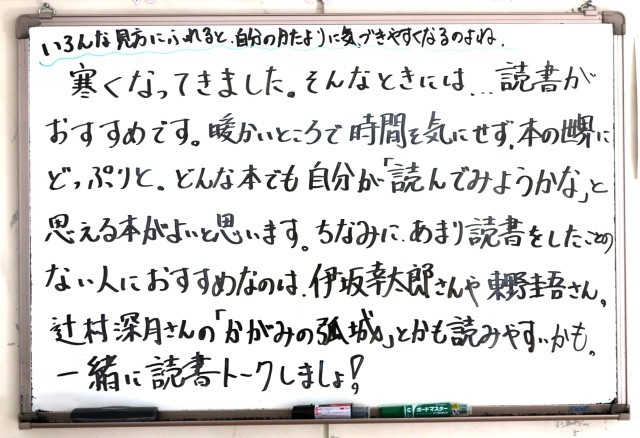 いろんな見方にふれると、自分のかたよりに気づきやすくなるのよね.
寒くなってきました。そんなときには…読書が
おすすめです。暖かいところで時間を気にせず、本の世界に
どっぷりと。どんな本でも自分が「読んでみようかな」と
思える本がよいと思います。ちなみに、あまり読書をしたことの
ない人におすすめなのは、伊坂幸太郎さんや東野圭吾さん。
辻村深月さんの「かがみの孤城」とかも読みやすいかも。
一緒に読書トークしましょ!
ボードマスター